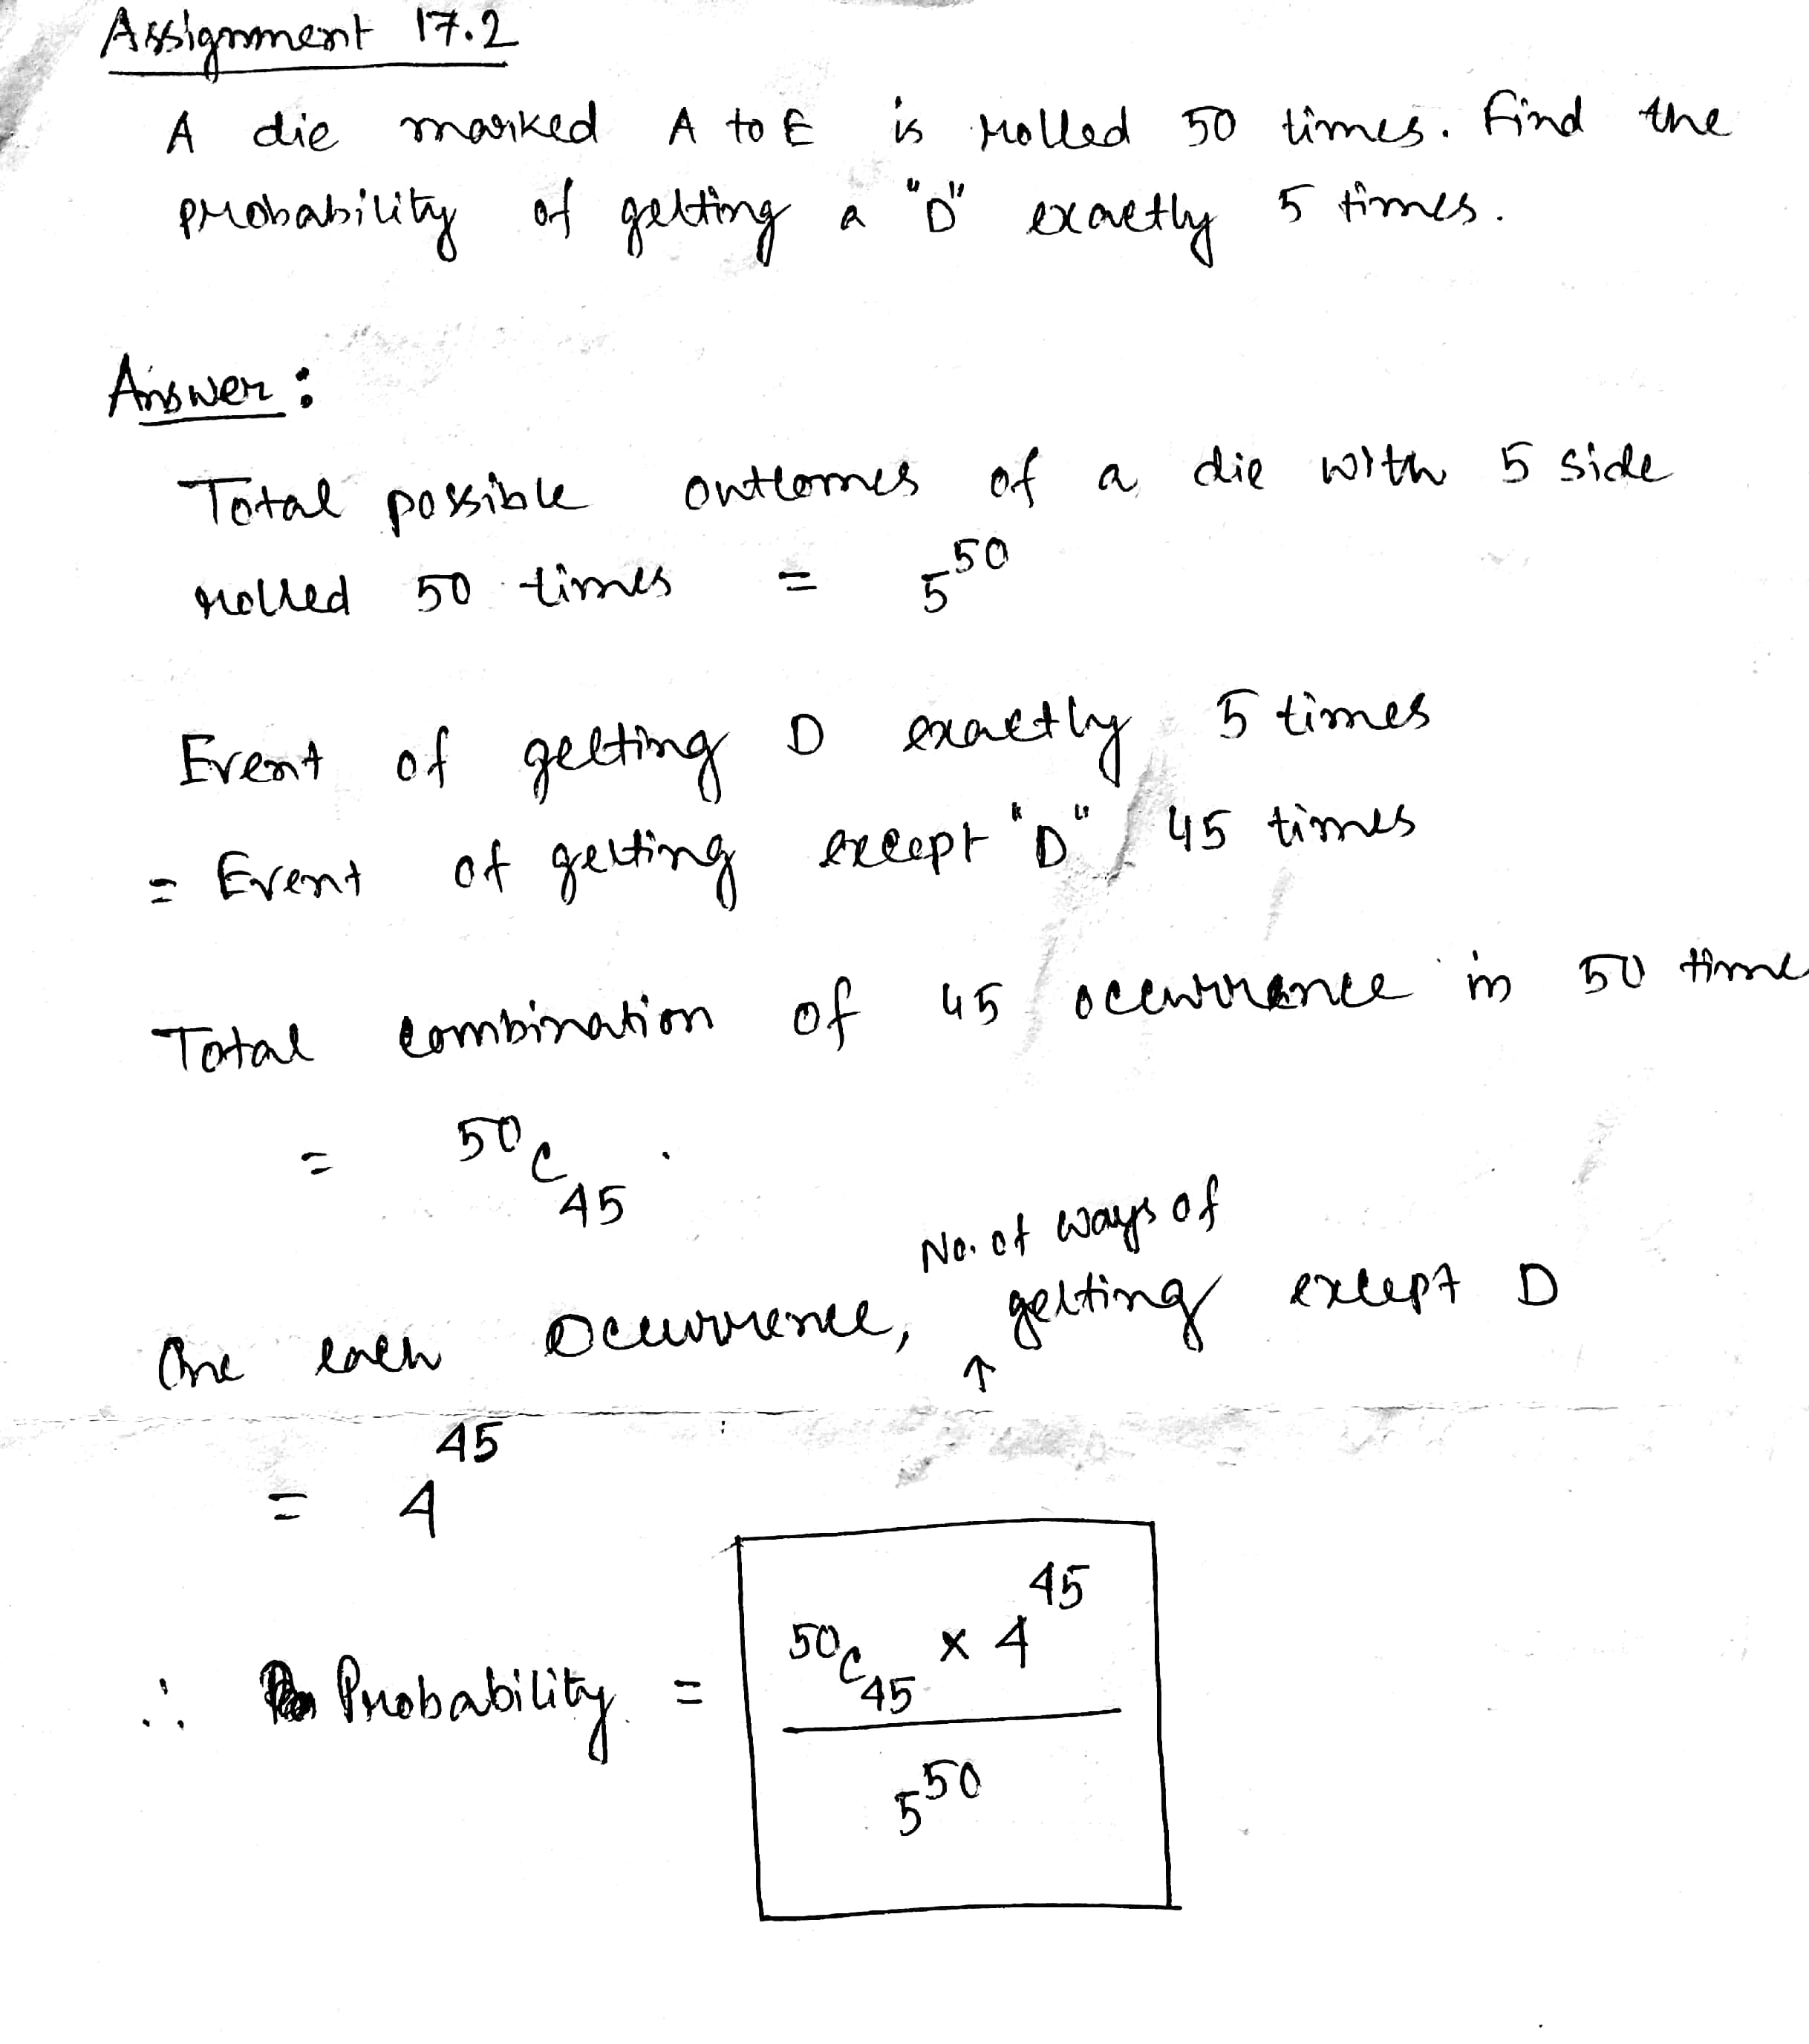 Assignment 17.2
A die marked A to E is rolled 50 times. Find the
probability of getting a "D" exactly 5 times.
Answer :
Total possible outcomes of a die with 5 side
rolled 50 times = 5^50
Event of getting D exactly 5 times
= Event of getting except "D" 45 times
Total combination of 45 occurrance in 50 time
= 50C45
No. of ways of
One each occurrence, ↑ getting except D
= 4^45
∴ Probability = 50C45 × 4^45
5^50